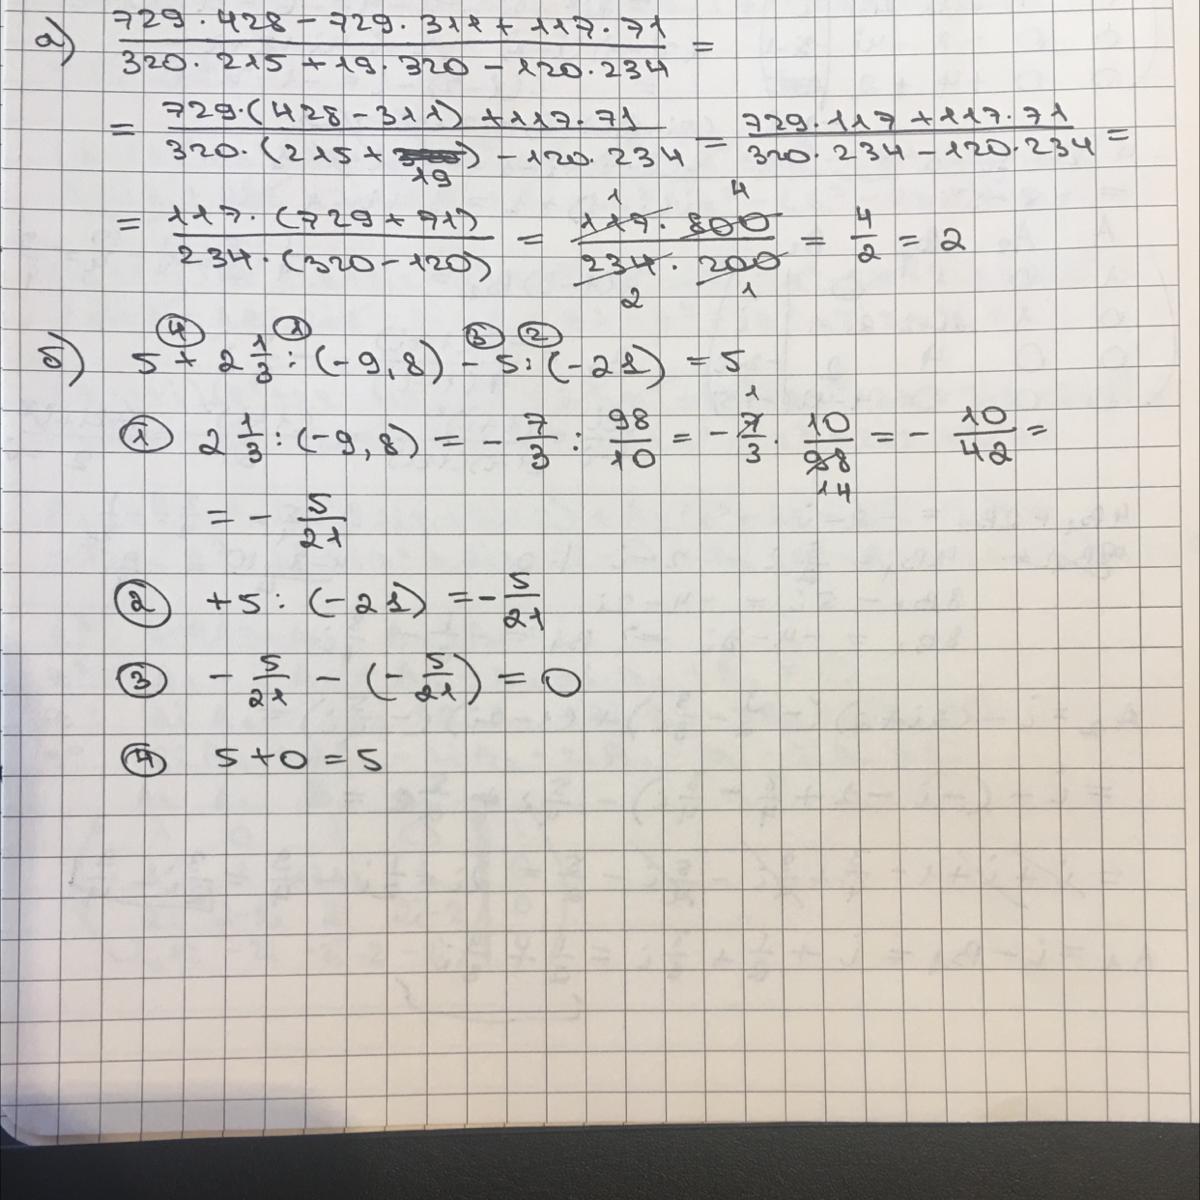 а) (729·428 − 729·311 + 117·71)/(320·215 + 19·320 − 120·234) =
= (729·(428 − 311) + 117·71)/(320·(215 + 19) − 120·234) = (729·117 + 117·71)/(320·234 − 120·234) =
= (117·(729 + 71))/(234·(320 − 120)) = (117·800)/(234·200) 1 4 2 1 = 4/2 = 2
④ ① ③ ②
б) 5 + 2 1/3 : (−9,8) − 5 : (−21) = 5
① 2 1/3 : (−9,8) = − 7/3 : 98/10 = − 7/3 · 10/98 1 14 = − 10/42 =
= − 5/21
② +5 : (−21) = − 5/21
③ − 5/21 − (− 5/21) = 0
④ 5 + 0 = 5